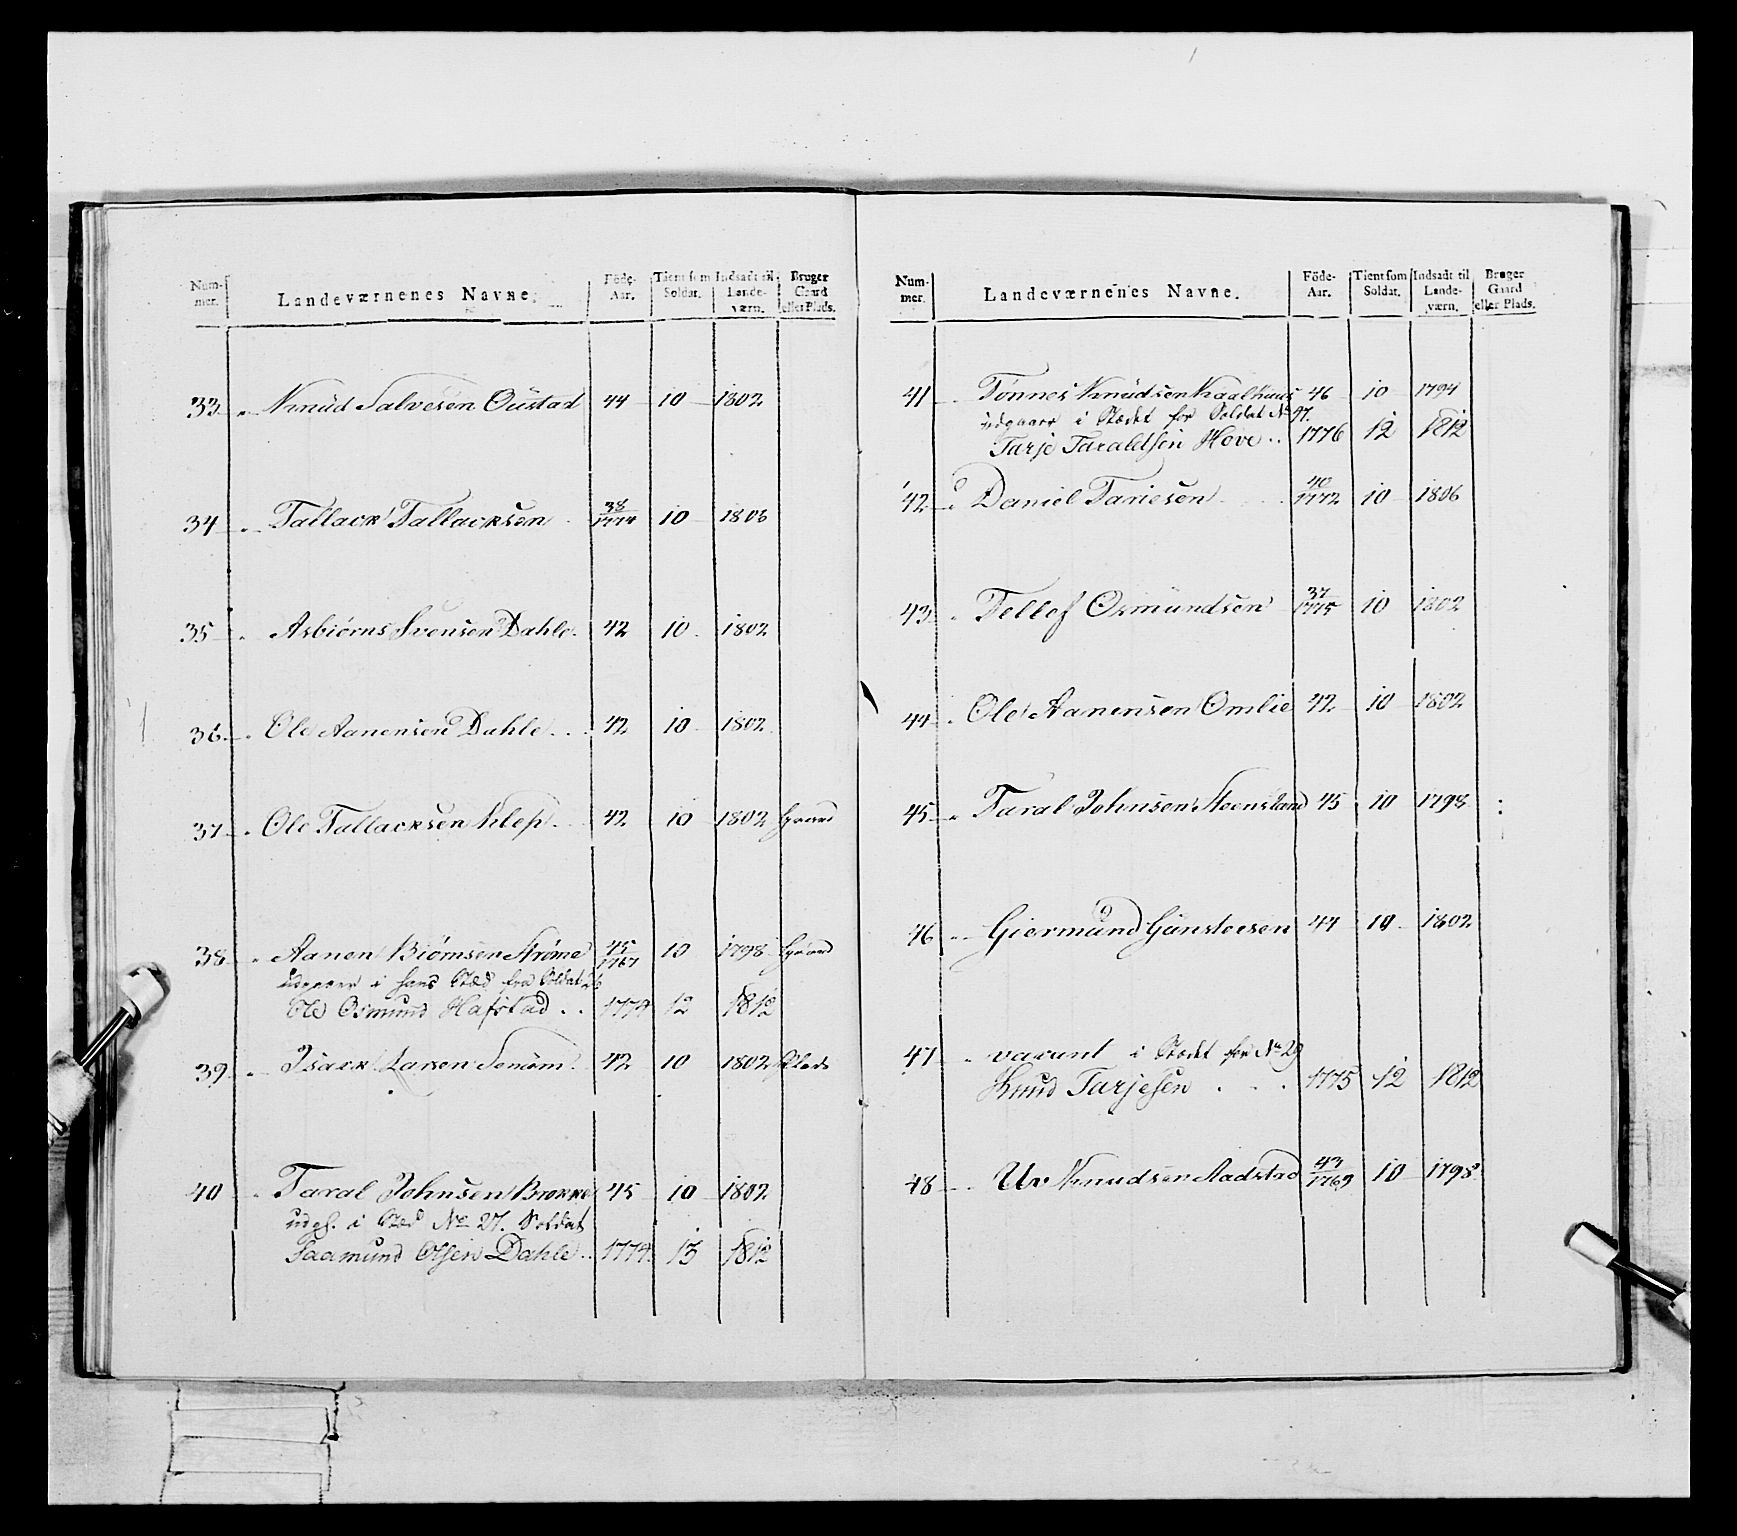 Num- mer. Landeværnenes Navne. Föde- Aar. Tient som Soldat. Indsadt til Lande- værn. Bruger Gaard eller Plads.
33 Knud Salvesen Oustad 44 10 1802
34 Tallack Tallacksen 38 1774 10 1806
35 Asbiørns Svensen Dahle 42 10 1802
36 Ole Aanensen Dahle 42 10 1802
37 Ole Tallacksen Klep 42 10 1802 Gaard
38 Aanen Biørnsen Strøme 45 1767 10 1798 Gaard
udgaaer i hans Stæd fra Soldat 26
Ole Osmund Hafstad 1774 12 1812
39 Isack Larsen 42 10 1802 Plads
40 Taral Johnsen Brokke 45 10 1802
udg. i Stæd No 27. Soldat
Saamund Olsen Dahle 1774 13 1812
Num- mer. Landeværnenes Navne. Föde- Aar. Tient som Soldat. Indsadt til Lande- værn. Bruger Gaard eller Plads.
41 Tønnes Knudsen Kaalhuus 46 10 1794
udgaaer i Stædet for Soldat No 97.
Tarje Taraldsen Hove 1776 12 1812
42 Daniel Tariesen 40 1772 10 1806
43 Tellef Osmundsen 37 1775 10 1802
44 Ole Aanensen Omlie 42 10 1802
45 Taral Johnsen Steensland 45 10 1798
46 Giermund Gunstensen 44 10 1802
47 vacant i Stædet for No 29
Knud Tarjesen 1775 12 1812
48 Knudsen Aadstad 43 1769 10 1798